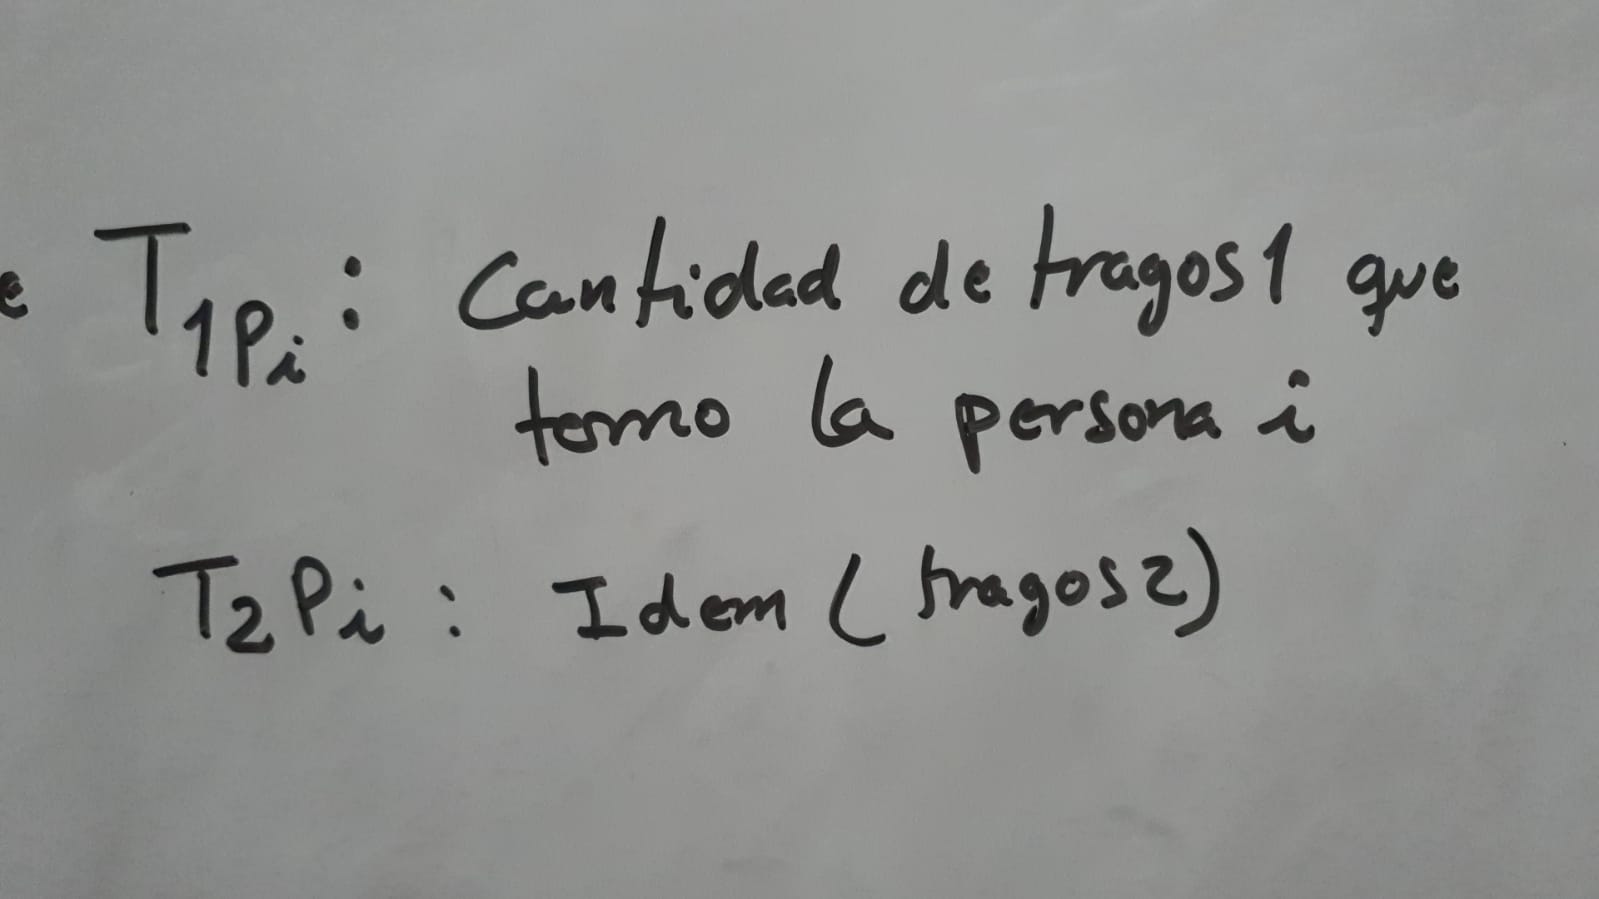 e T1Pi : Cantidad de tragos 1 que
tomo la persona i
T2Pi : Idem ( tragos 2)